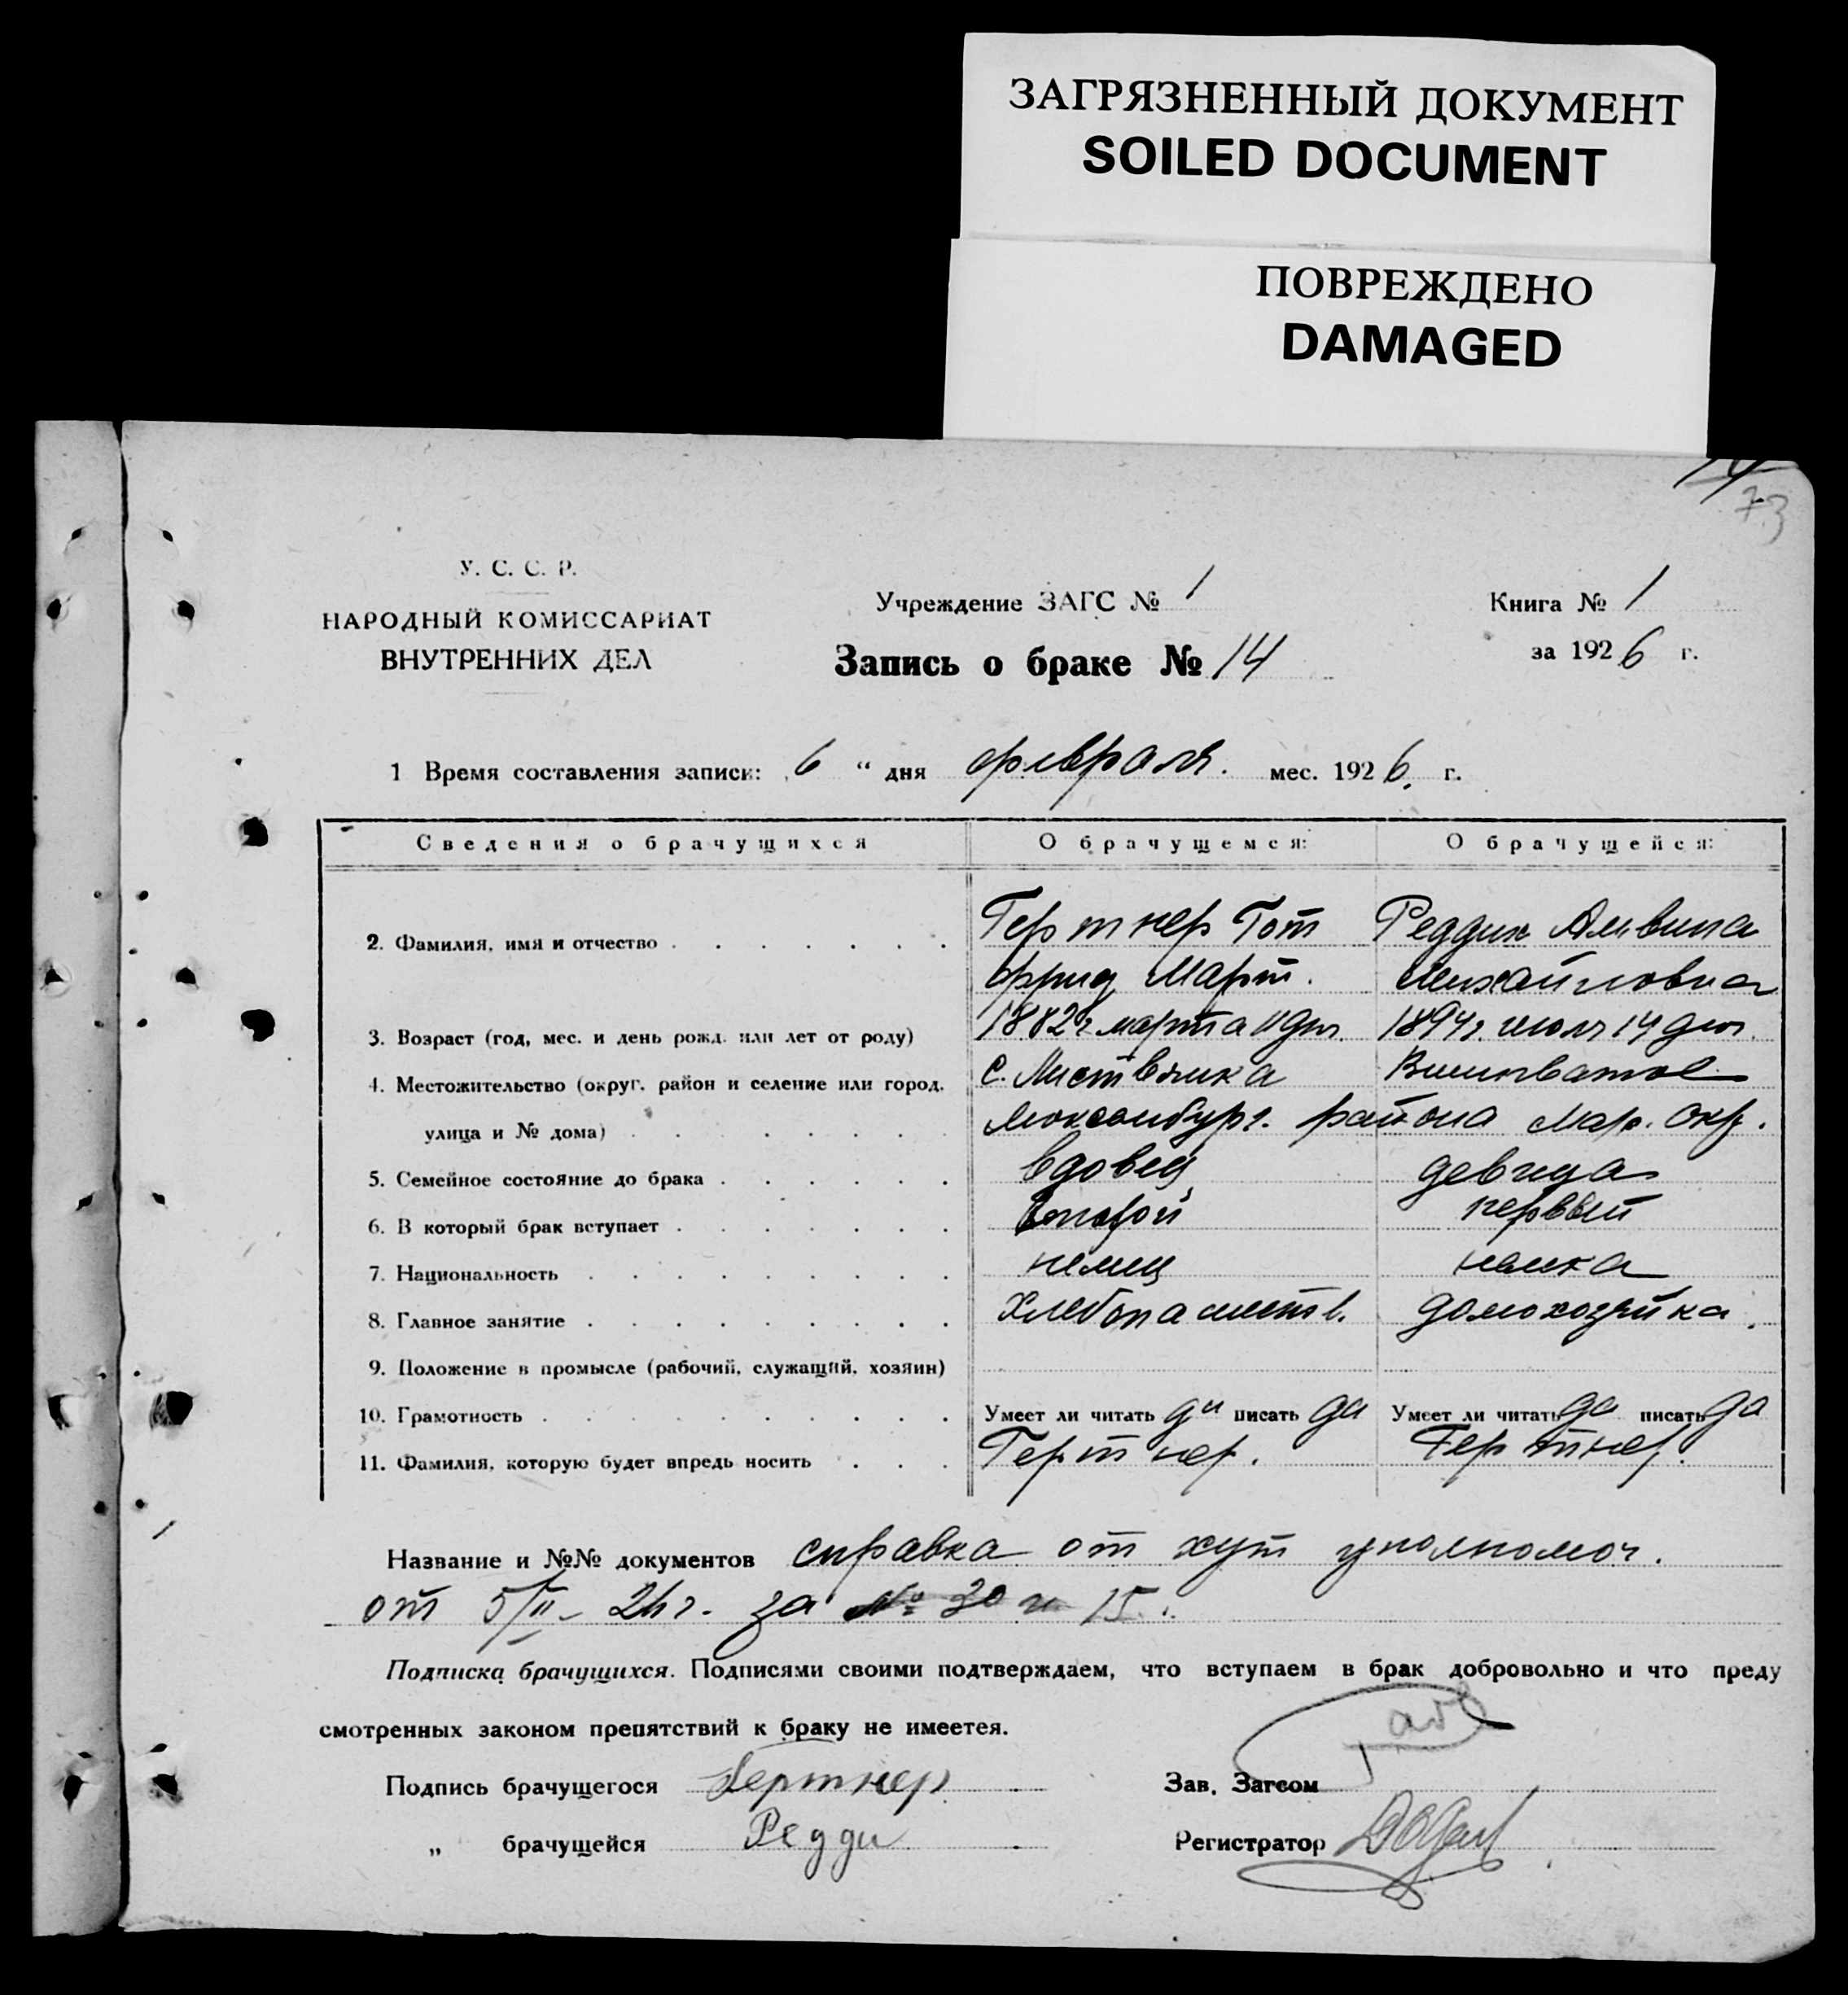 ЗАГРЯЗНЕННЫЙ ДОКУМЕНТ
SOILED DOCUMENT
ПОВРЕЖДЕНО
DAMAGED
73
У. С. С. Р.
НАРОДНЫЙ КОМИССАРИАТ
ВНУТРЕННИХ ДЕЛ
Учреждение ЗАГС № 1
Запись о браке № 14
Книга № 1
за 1926 г.
1 Время составления записи: 6 " дня февраля. мес. 1926. г.
Сведения о брачущихся О брачущемся: О брачущейся:
2. Фамилия, имя и отчество Гертнер Гот Реддих Альвина
фрид Март. Михайловна
3. Возраст (год, мес. и день рожд. или лет от роду) 1882 г. марта 11 дня. 1894 г. июля 14 дня.
4. Местожительство (округ, район и селение или город, с. Листвянка
улица и № дома) Люксембург. района Мар. Окр.
5. Семейное состояние до брака вдовец девица
6. В который брак вступает второй первый
7. Национальность немец немка
8. Главное занятие хлебопашеств. домохозяйка.
9. Положение в промысле (рабочий, служащий, хозяин)
10. Грамотность Умеет ли читать да писать да Умеет ли читать да писать да
11. Фамилия, которую будет впредь носить Гертнер. Гертнер.
Название и №№ документов справка от хут уполномоч.
от 5/II- 26 г. за № 30 и 15.
Подписка брачущихся. Подписями своими подтверждаем, что вступаем в брак добровольно и что преду
смотренных законом препятствий к браку не имеется.
Подпись брачущегося Гертнер
Зав. Загсом
„ брачущейся Редди
Регистратор